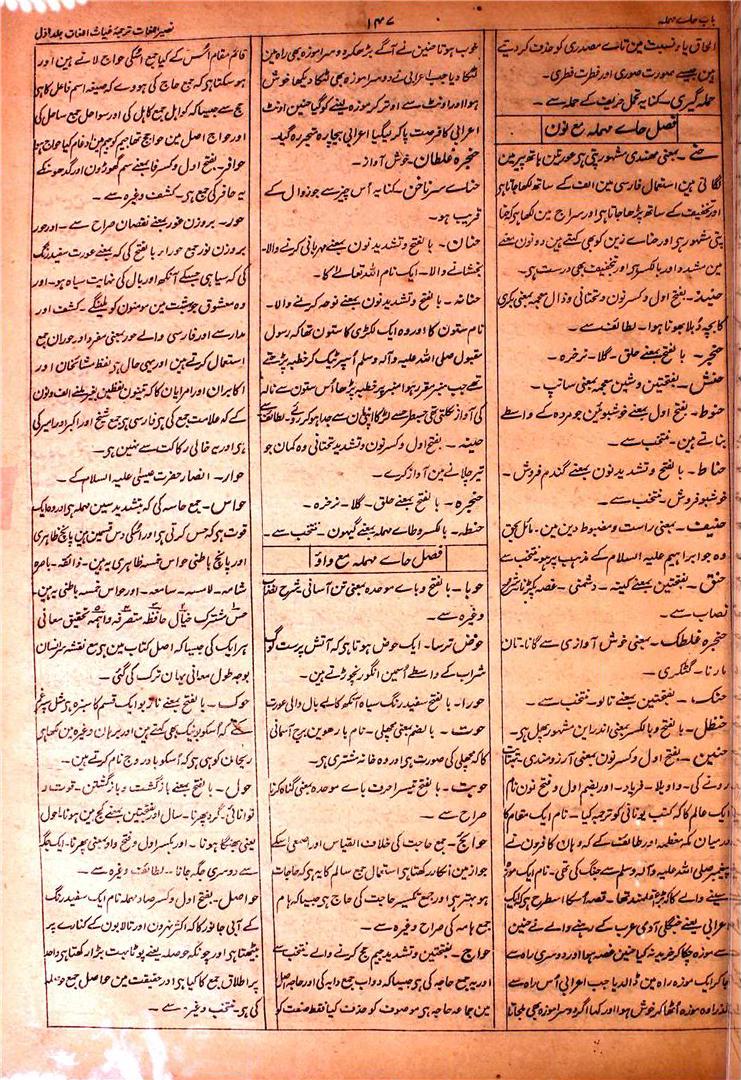 باب حاے مہملہ
۱۴۷
نصیر اللغات ترجمۂ غیاث اللغات جلد اول
الحاق یاء نسبت مین تاے مصدری کو حذف کر دیتے
ہین جیسے صورت صوری اور فطرت فطری۔
حملہ گیری۔ کنایہ تحمل حریف کے حملہ سے۔
فصل حاے مہملہ مع نون
حنے۔ بمعنی مہندی مشہور پتی ہی عورتین ہاتھ پیر مین
لگاتی ہین استعمال فارسی مین الف کے ساتھ لکھا جاتا ہی
اور تخفیف کے ساتھ پڑھا جاتا ہی اور سراج مین لکھا ہی کہ حنا
پتی مشہور ہی اور حناے زین کو بھی کہتے ہین دونون معنے
مین مشدد اور بالکسر ہی اور بتخفیف بھی درست ہی۔
حنیذ۔ بفتح اول و کسر نون و تحتانی و ذال معجمہ بمعنی بکری
کا بچہ دُبلا بھونا ہوا۔ لطائف سے۔
حنجر۔ بالفتح بمعنے حلق۔ گلا۔ نرخرہ۔
حنش۔ بفتحتین و شین معجمہ بمعنی سانپ۔
حنوط۔ بفتح اول بمعنے خوشبوئین جو مردہ کے واسطے
بناتے ہین۔ منتخب سے۔
حناط۔ بالفتح و تشدید نون بمعنے گندم فروش۔
خوشبو فروش۔ منتخب سے۔
حنیف۔ بمعنی راست و مضبوط دین مین۔ مائل بحق
وہ جو ابراہیم علیہ السلام کے مذہب پر ہو۔ منتخب سے
حنق۔ بفتحتین بمعنے کینہ۔ دشمنی۔ غصہ کپڑنا شرح
نصاب سے۔
حنجرہ غلطک۔ بمعنی خوش آوازی سے گانا۔ تان
مارنا۔ گٹکری۔
حنک۔ بفتحتین بمعنے تالو۔ منتخب سے۔
حنظل۔ بالفتح و بالکسر بمعنی اندراین مشہور پھل ہی۔
حنین۔ بفتح اول و کسر نون بمعنی آرزومندی۔ نہایت
رونے کی۔ واویلا۔ فریاد۔ اور بضم اول و فتح نون نام
ایک عالم کا کہ کتب یونانی کو ترجمہ کیا۔ نام ایک مقام کا
درمیان مکہ معظمہ اور طائف کے کہ وہان کافرون نے
پیغمبر صلی اللہ علیہ و آلہ وسلم سے جنگ کی تھی۔ نام ایک موزہ
سینے والے کا کہ بڑا ہنرمند تھا۔ قصہ اُسکا اسطرح ہی کہ ایک
اعرابی یعنے جنگلی آدمی عرب کے رہنے والے نے حنین
سے موزہ چکا کر خرید نہ کیا حنین غصہ ہوا اور دوسری راہ سے
جا کر ایک موزہ راہ مین ڈالدیا جب اعرابی اُس راہ سے
گذرا وہ موزہ اُٹھا کر خوش ہوا اور کہا اگر دوسرا موزہ بھی ملجاتا
خوب ہوتا حنین نے آگے بڑھکر دوسرا موزہ بھی راہ مین
لٹکا دیا جب اعرابی نے دوسرا موزہ بھی لٹکا دیکھا خوش
ہوا اور اونٹ سے اوتر کر موزہ لینے کو گیا حنین اونٹ
اعرابی کا فرصت پا کر لیگیا اعرابی بیچارہ متحیر رہ گیا۔
حنجرہ غلطان۔ خوش آواز۔
حناے سر ناخن۔ کنایہ اُس چیز سے جو زوال کے
قریب ہو۔
حنان۔ بالفتح و تشدید نون بمعنے مہربانی کرنے والا۔
بخشانے والا۔ ایک نام اللہ تعالےٰ کا۔
حنانہ۔ بالفتح و تشدید نون بمعنے نوحہ کرنے والا۔
نام ستون کا اور وہ ایک لکڑی کا ستون تھا کہ رسول
مقبول صلی اللہ علیہ و آلہ وسلم اُسپر ٹیک کر خطبہ پڑھتے
تھے جب منبر مقرر ہوا منبر پر خطبہ پڑھا اُس ستون سے نالہ
کی آواز نکلتی تھی جسطرح سے لڑکا اپنی مان سے جدا ہو کر روئے۔ لطائف سے
حنینہ۔ بفتح اول و کسر نون و تشدید تحتانی وہ کمان جو
تیر چلانے مین آواز کرے۔
حنجرہ۔ بالفتح بمعنے حلق۔ گلا۔ نرخرہ۔
حنطہ۔ بالکسر و طاے مہملہ بمعنے گیہون۔ منتخب سے۔
فصل حاے مہملہ مع واو
حوبا۔ بالفتح و باے موحدہ بمعنی تن آسانی شرح نصاب
وغیرہ سے۔
حوض ترسا۔ ایک حوض ہوتا ہی کہ آتش پرست لوگ
شراب کے واسطے اُسمین انگور نچوڑتے ہین۔
حورا۔ بالفتح سفید رنگ سیاہ آنکھ کالے بال والی عورت
حوت۔ بالضم بمعنی مچھلی۔ نام بارھوین برج آسمانی
کا کہ مچھلی کی صورت ہی اور وہ خانہ مشتری ہی۔
حوبت۔ بالفتح تیسرا حرف باے موحدہ بمعنی گناہ کرنا
صراح سے۔
حوائج۔ جمع حاجت کی خلاف القیاس اور اصمعی اسکے
جواز مین انکار رکھتا ہی استعمال جمع سالم کا یہ ہی کہ حاجات
ہو بہتر ہی اور جمع تکسیر حاجت کی حاج ہی جیسا کہ ہام
جمع ہامہ کی صراح وغیرہ سے۔
حواج۔ بفتحتین و تشدید جیم حج کرنے والے منتخب سے
اور یہ جمع حاجہ کی ہی جیسا کہ دواب جمع دابہ کی اور حاجہ اصل
مین جماعہ حاجہ ہی موصوف کو حذف کیا فقط صفت کو
قائم مقام اُس کے کیا جمع اُسکی حواج لاتے ہین اور
ہو سکتا ہی کہ جمع حاج کی ہووے کہ صیغہ اسم فاعل کا ہی
حج سے جیسا کہ کواہل جمع کاہل کی اور سواحل جمع ساحل کی
اور حواج اصل مین حواجج تھا جیم کو جیم مین ادغام کیا حواج ہوا
حوافر۔ بفتح اول و کسر فا بمعنے سم گھوڑون اور گدھونکے
یہ حافر کی جمع ہی۔ کشف وغیرہ سے۔
حور۔ بروزن غور بمعنے نقصان صراح سے۔ اور حور
بروزن نور جمع حوراء بالفتح کی کہ بمعنے عورت سفید رنگ
کی کہ سیاہی جسکے آنکھ اور بال کی نہایت سیاہ ہو۔ اور
وہ معشوق جو بہشت مین مومنون کو ملینگے۔ کشف اور
مدار سے اور فارسی والے حور بمعنی مفرد اور حوران جمع
استعمال کرتے ہین اور یہی حال ہی لفظ مشائخان اور
اکابران اور امرایان کا کہ تینون لفظین بغیر ملنے الف و نون
کے کہ علامت جمع کی ہی فارسی ہی جمع شیخ اور اکبر اور امیر کی
ہی اور یہ خالی رکاکت سے نہین ہی۔
حوار۔ انصار حضرت عیسیٰ علیہ السلام کے۔
حواس۔ جمع حاسہ کی کہ بتشدید سین مہملہ ہی اور وہ ایک
قوت ہی کہ حس کرتی ہی اور اُسکی دس قسمین ہین پانچ ظاہری
اور پانچ باطنی حواس خمسہ ظاہری یہ ہین۔ ذائقہ۔ باصرہ
شامہ۔ لامسہ۔ سامعہ۔ اور حواس خمسہ باطنی یہ ہین۔
حس مشترک خیال حافظہ متصرفہ واہمہ تحقیق معانی
ہر ایک کی جیسا کہ اصل کتاب مین ہی مع نقشہ سر انسان
بوجہ طول معانی یہان ترک کی گئی۔
حوک۔ بالفتح بمعنے نازبو ایک قسم کا سبزہ ہی مثل مرغم
کے کہ اسکو زینک بھی کہتے ہین اور برہان وغیرہ مین لکھا ہی
ریحان کو بھی ہی کہ اسکو بادروج نام کرتے ہین۔
حول۔ بالفتح بمعنے بازگشت و بازگشتن۔ قوت و
توانائی۔ گرد پھرنا۔ سال اور بفتحتین بمعنے کج بین ہونا۔ احول
یعنی بھینگا ہونا۔ اور بکسر اول و فتح واو بمعنی پھرنا۔ ایک جگہ
سے دوسری جگہ جانا۔ لطائف وغیرہ سے۔
حواصل۔ بفتح اول و کسر صاد مہملہ نام ایک سفید رنگ
کے آبی جانور کا کہ اکثر نہرون اور تالابون کے کنارے پر
بیٹھتا ہی اور چونکہ حوصلہ یعنے پوٹا بہت بڑا رکھتا ہی واحد
پر اطلاق جمع کا کیا ہی اور حقیقت مین حواصل جمع حوصلہ
کی ہی۔ منتخب وغیرہ سے۔